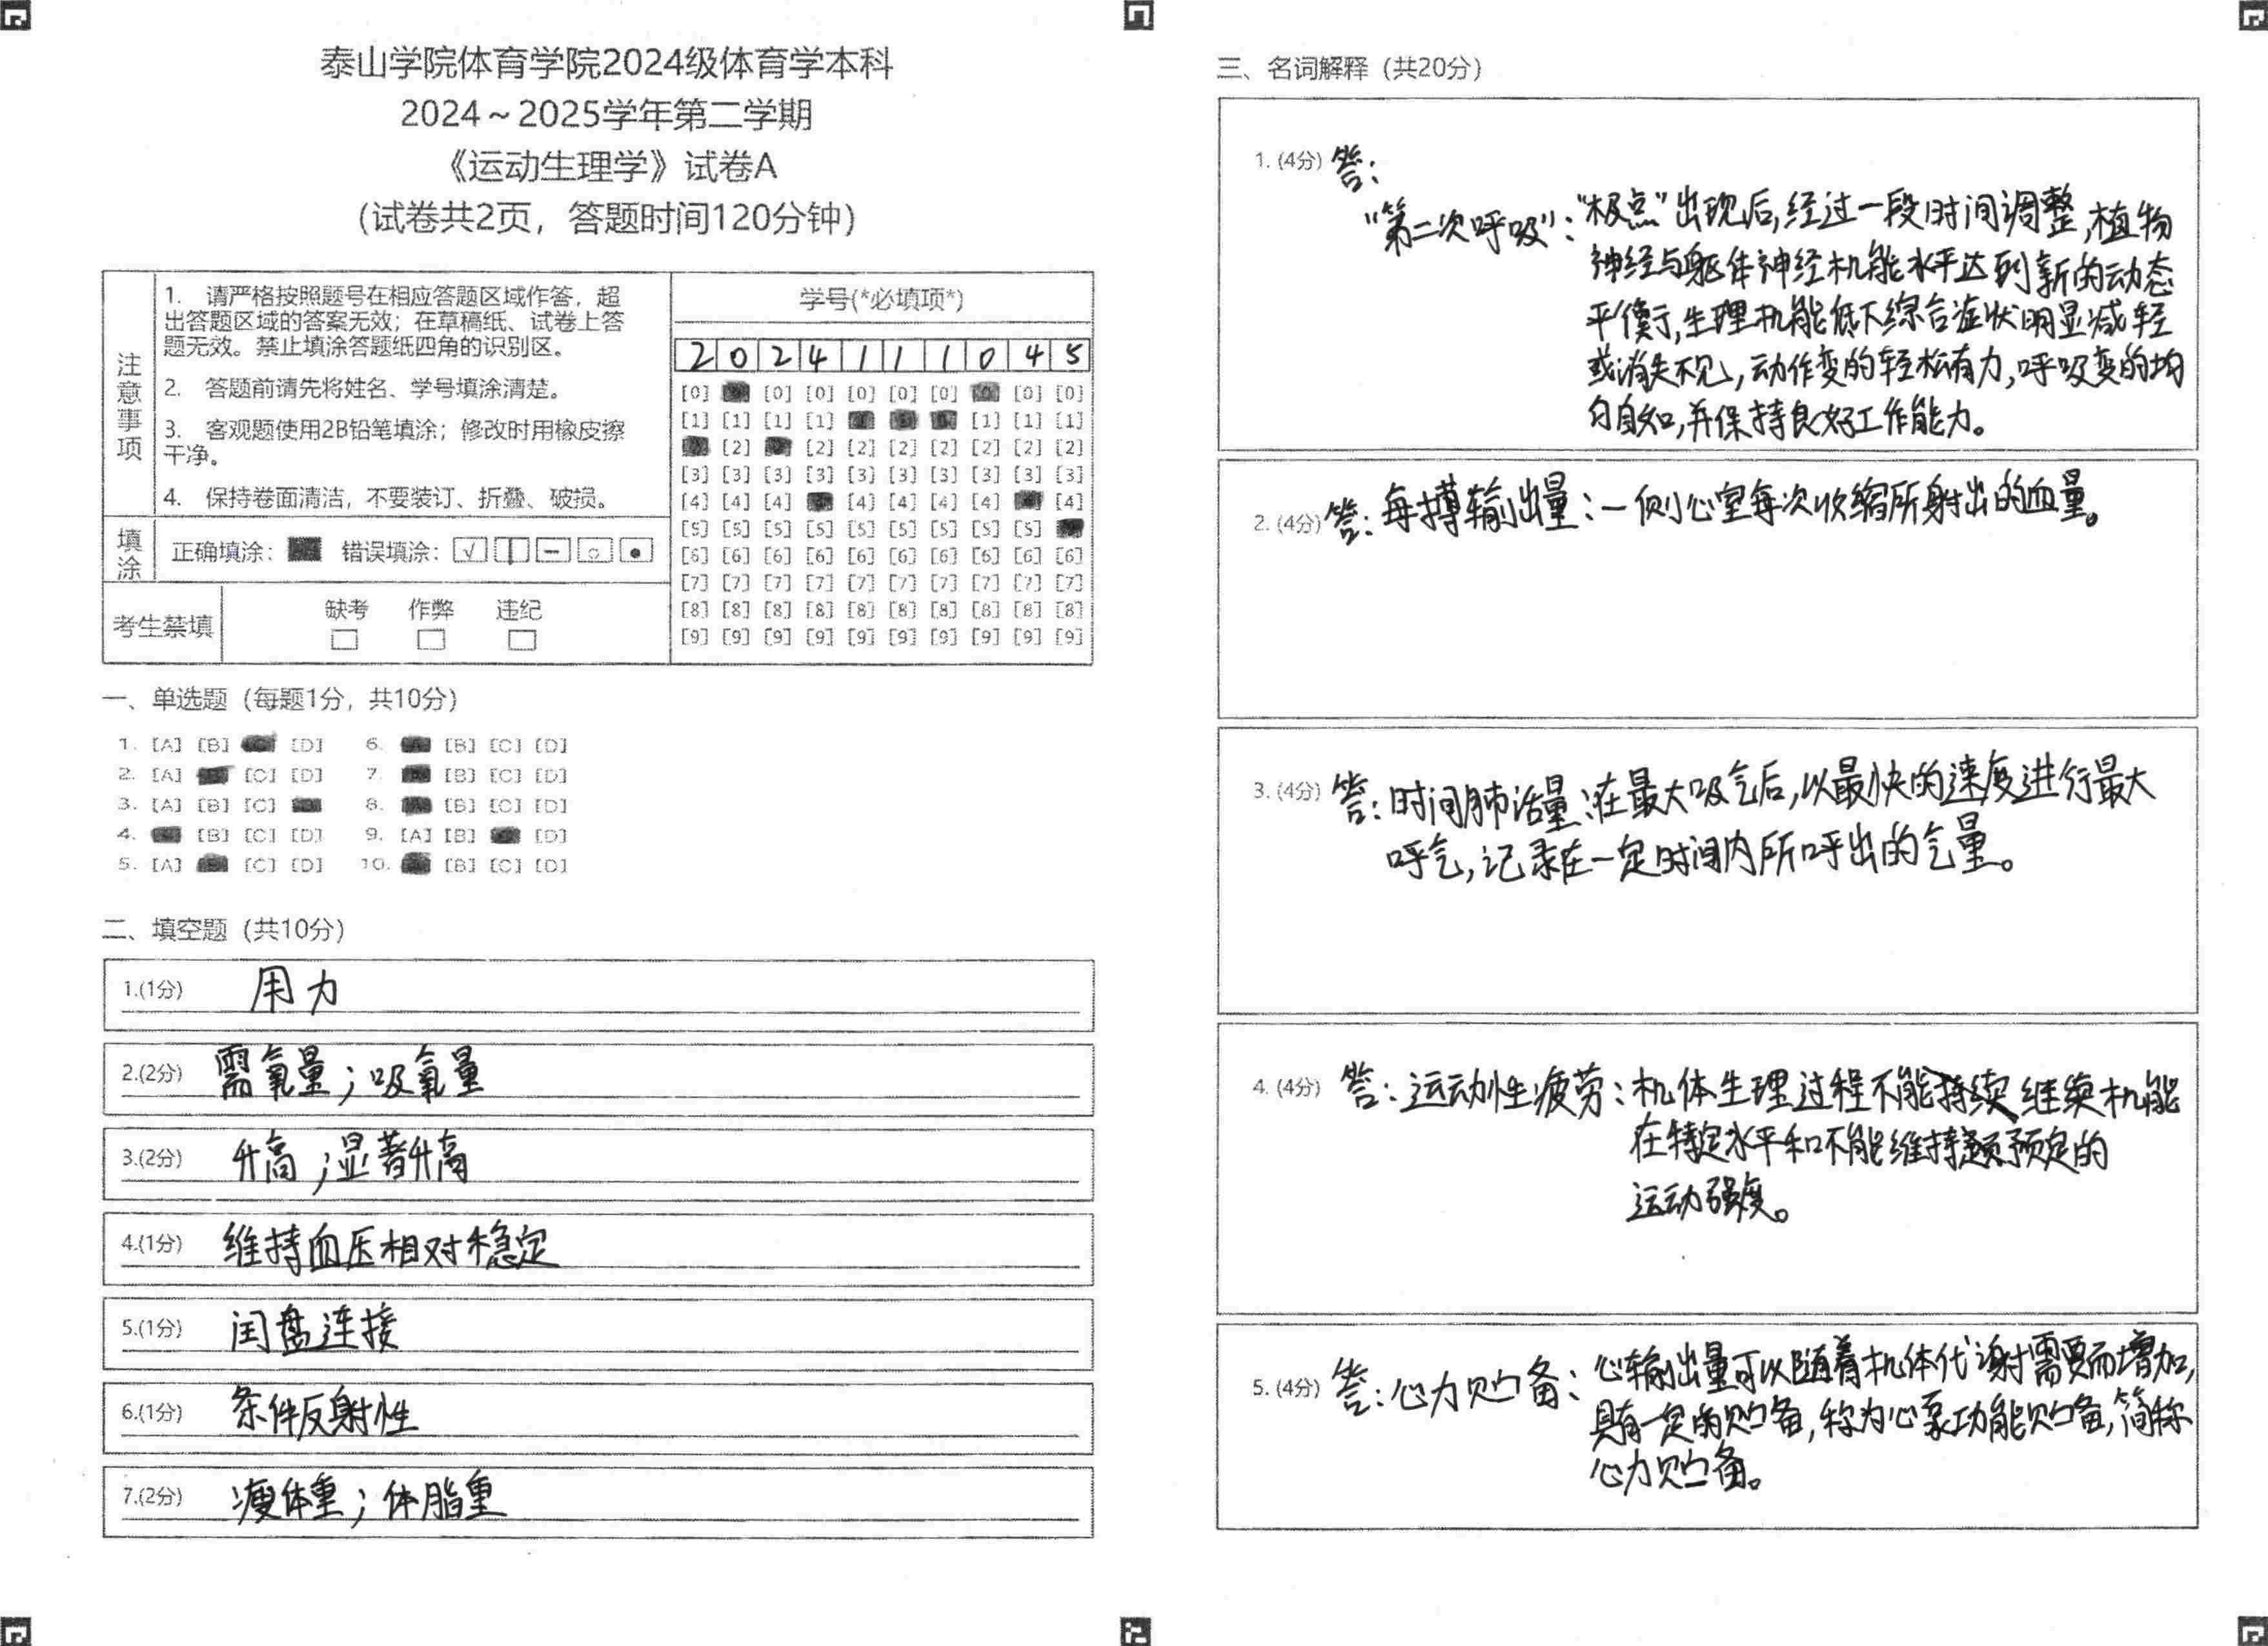 泰山学院体育学院2024级体育学本科
2024～2025学年第二学期
《运动生理学》试卷A
(试卷共2页，答题时间120分钟)
注意事项
1. 请严格按照题号在相应答题区域作答，超
出答题区域的答案无效；在草稿纸、试卷上答
题无效。禁止填涂答题纸四角的识别区。
2. 答题前请先将姓名、学号填涂清楚。
3. 客观题使用2B铅笔填涂；修改时用橡皮擦
干净。
4. 保持卷面清洁，不要装订、折叠、破损。
填涂
正确填涂： 错误填涂：
考生禁填
缺考 作弊 违纪
学号(*必填项*)
2 0 2 4 1 1 1 0 4 5
[0] [0] [0] [0] [0] [0] [0] [0]
[1] [1] [1] [1] [1] [1] [1]
[2] [2] [2] [2] [2] [2] [2] [2]
[3] [3] [3] [3] [3] [3] [3] [3] [3] [3]
[4] [4] [4] [4] [4] [4] [4] [4]
[5] [5] [5] [5] [5] [5] [5] [5] [5]
[6] [6] [6] [6] [6] [6] [6] [6] [6] [6]
[7] [7] [7] [7] [7] [7] [7] [7] [7] [7]
[8] [8] [8] [8] [8] [8] [8] [8] [8] [8]
[9] [9] [9] [9] [9] [9] [9] [9] [9] [9]
一、单选题（每题1分，共10分）
1. [A] [B] [D] 6. [B] [C] [D]
2. [A] [C] [D] 7. [B] [C] [D]
3. [A] [B] [C] 8. [B] [C] [D]
4. [B] [C] [D] 9. [A] [B] [D]
5. [A] [C] [D] 10. [B] [C] [D]
二、填空题（共10分）
1.(1分) 用力
2.(2分) 需氧量；吸氧量
3.(2分) 升高；显著升高
4.(1分) 维持血压相对稳定
5.(1分) 闰盘连接
6.(1分) 条件反射性
7.(2分) 瘦体重；体脂重
三、名词解释（共20分）
1. (4分) 答：
“第二次呼吸”：“极点”出现后,经过一段时间调整,植物
神经与躯体神经机能水平达到新的动态
平衡,生理机能低下综合症状明显减轻
或消失不见,动作变的轻松有力,呼吸变的均
匀自如,并保持良好工作能力。
2. (4分) 答：每搏输出量：一侧心室每次收缩所射出的血量。
3. (4分) 答：时间肺活量：在最大吸气后,以最快的速度进行最大
呼气,记录在一定时间内所呼出的气量。
4. (4分) 答：运动性疲劳：机体生理过程不能继续机能
在特定水平和不能维持预定的
运动强度。
5. (4分) 答：心力贮备：心输出量可以随着机体代谢需要而增加,
具有一定的贮备,称为心泵功能贮备,简称
心力贮备。